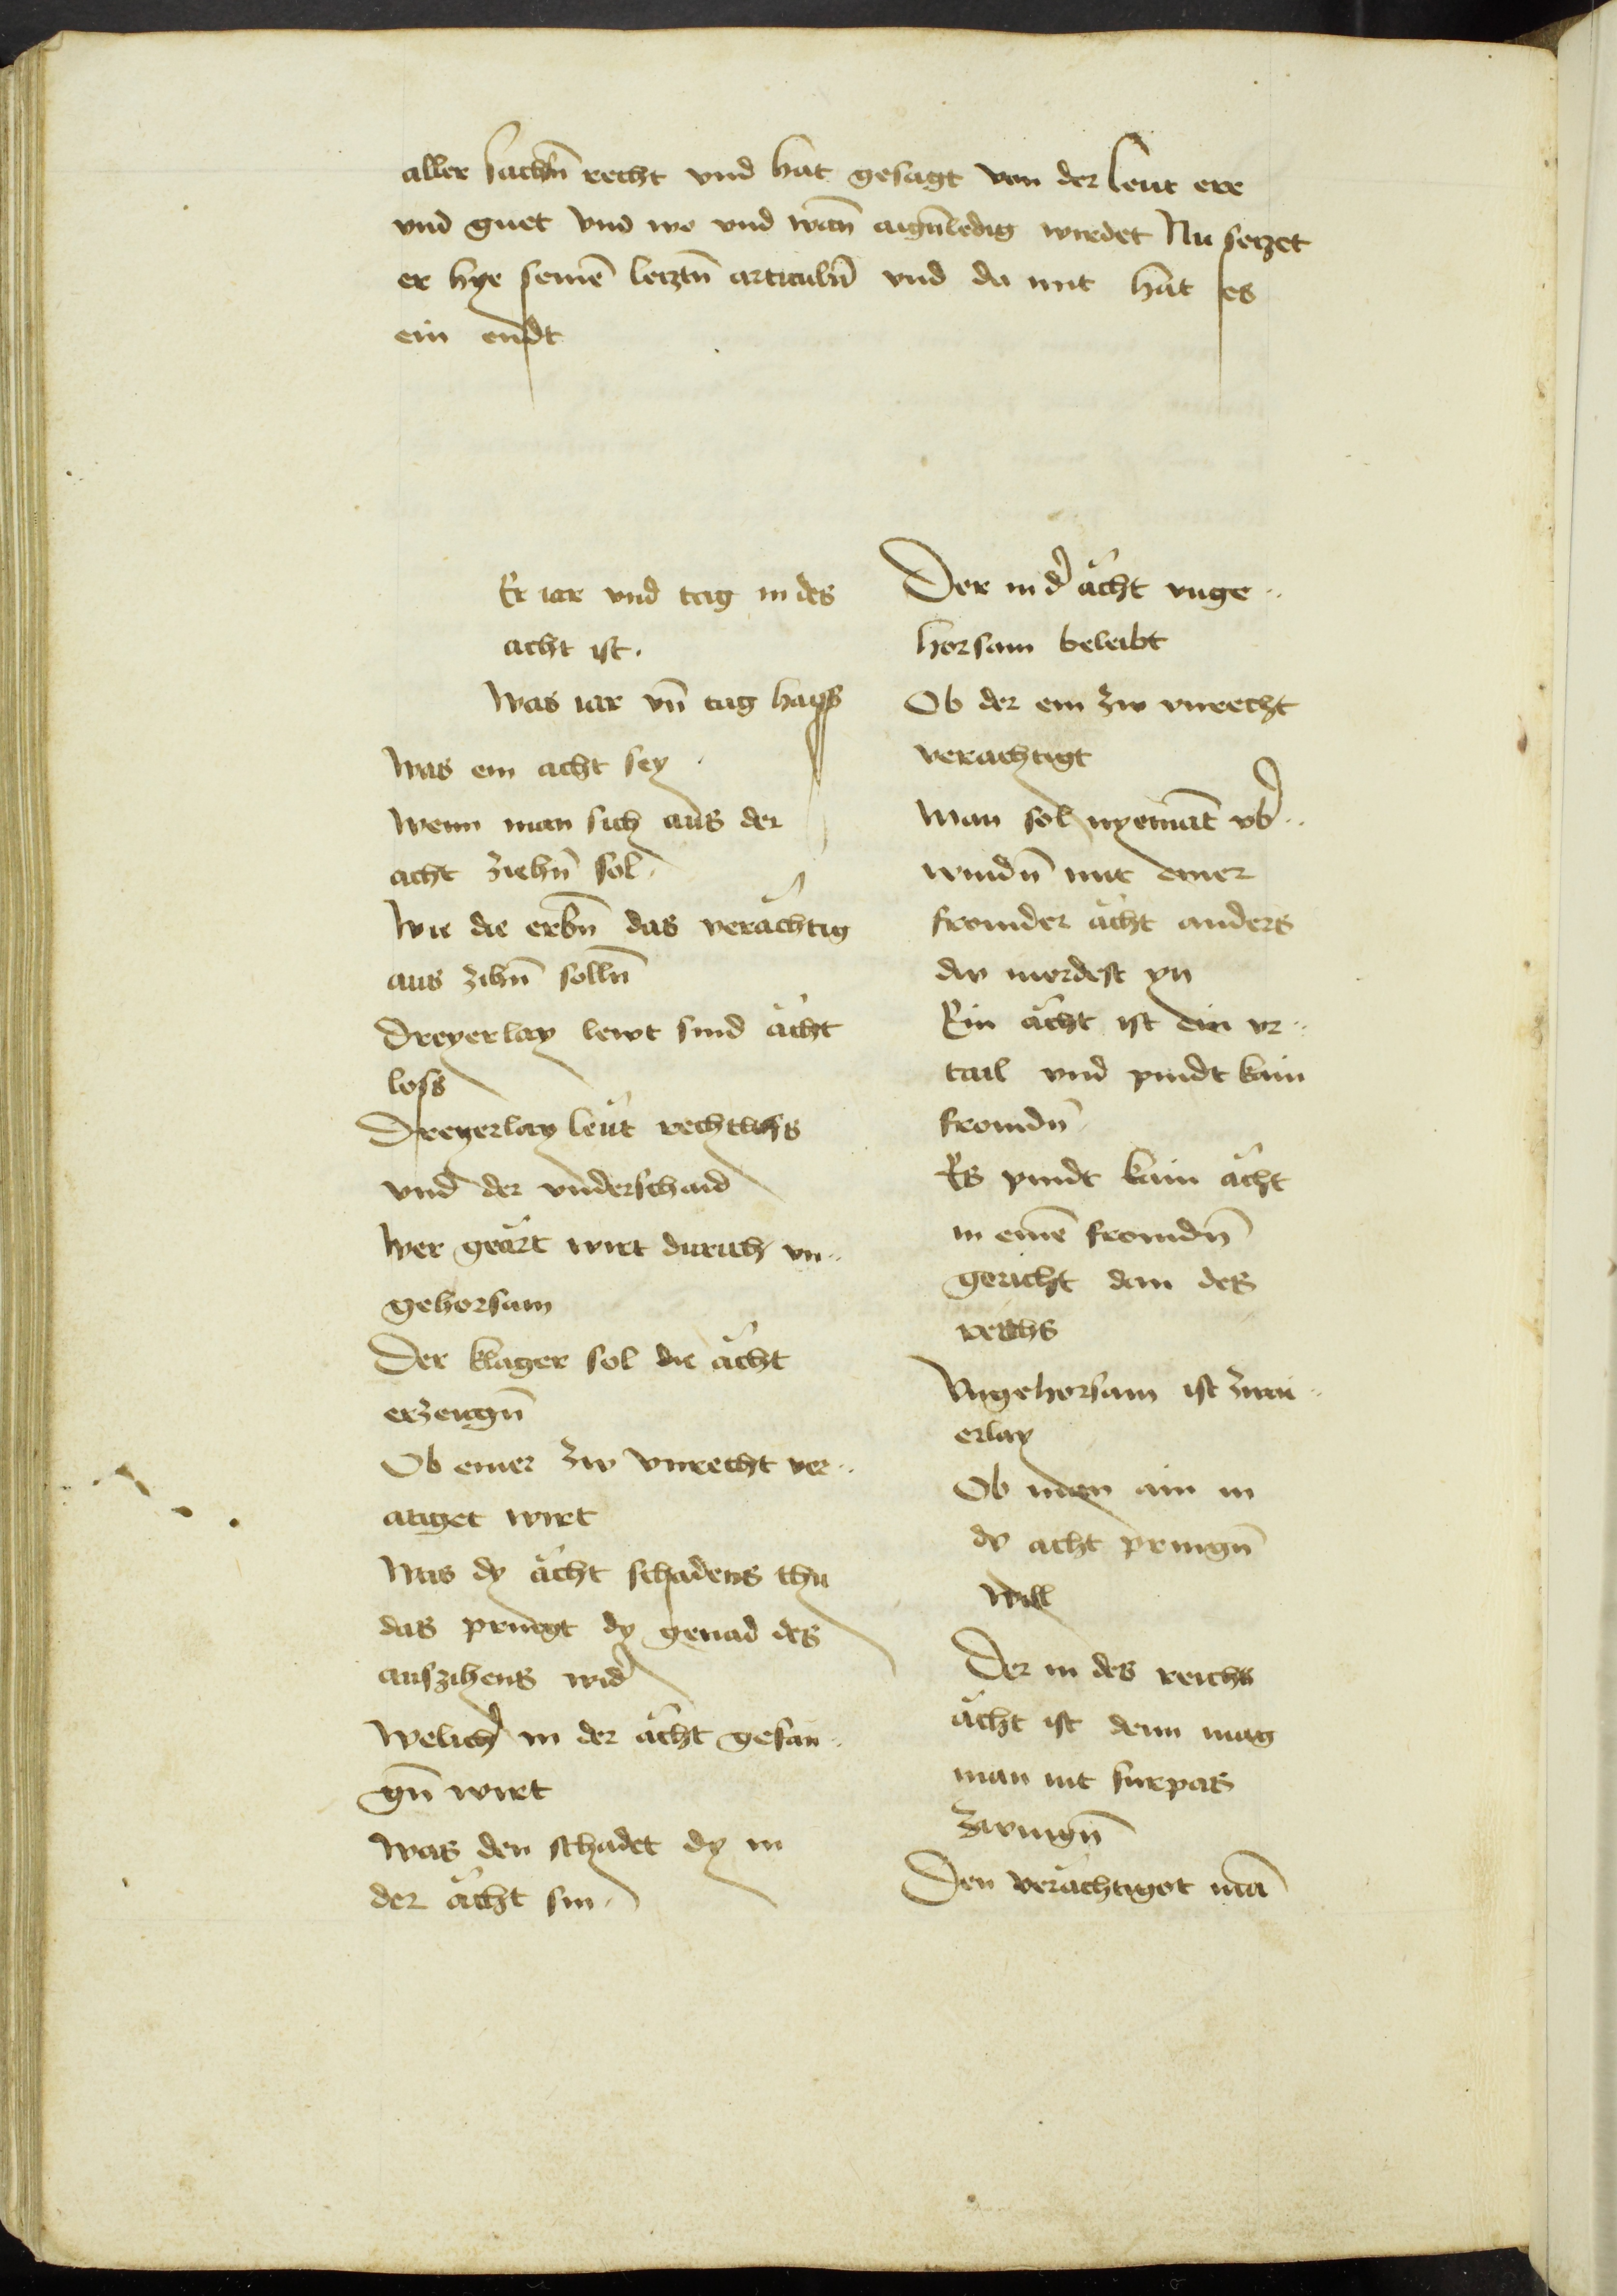 aller sachn̄ recht vnd hat gesagt von der leut ere
vnd guet vnd wo vnd wan̄ aign̄ ledig wirdet Nu setzet
er hye seinē letztn̄ articuln̄ vnd da mit hat es
ein endt
Er iar vnd tag in des
acht ist.
Was iar vn̄ tag hayss
Was ein acht sey
Wenn man sich aus der
acht ziehn̄ sol
Wie die erbn̄ das verächtig
aus zihn̄ solln̄
Dreyerlay lewt sind ächt
loss
Dreyerlay leut rechtloss
vnd der vnderschaid
Wer geärt wirt durich vn..
gehorsam
Der klager sol die ächt
erzeugn̄
Ob einer zw vnrecht ver..
ätiget wirt
Was dy ächt schadens thu
das pringt dy genad des
auszihens wid̉
Welich̉ in der ächt gefan..
gn̄ wirt
Was den schadet dy in
der ächt sin
Der in d̉ ächt vnge..
horsam beleibt
Ob der ein zw vnrecht
verachtigt
Man sol nyemāt vb̉..
windn̄ mit einer
fromder ächt anders
dw mordest yn
Ein ächt ist ein vr..
tail vnd pindt kain
fromdn̄
Es pindt kain ächt
in einē fromdn̄
gericht dan des
reichs
Vngehorsam ist zwai..
erlay
Ob man ain in
dy acht pringn̄
will
Der in des reichs
ächt ist denn mag
man nit furpas
zwingn̄
Den verächtiget mā